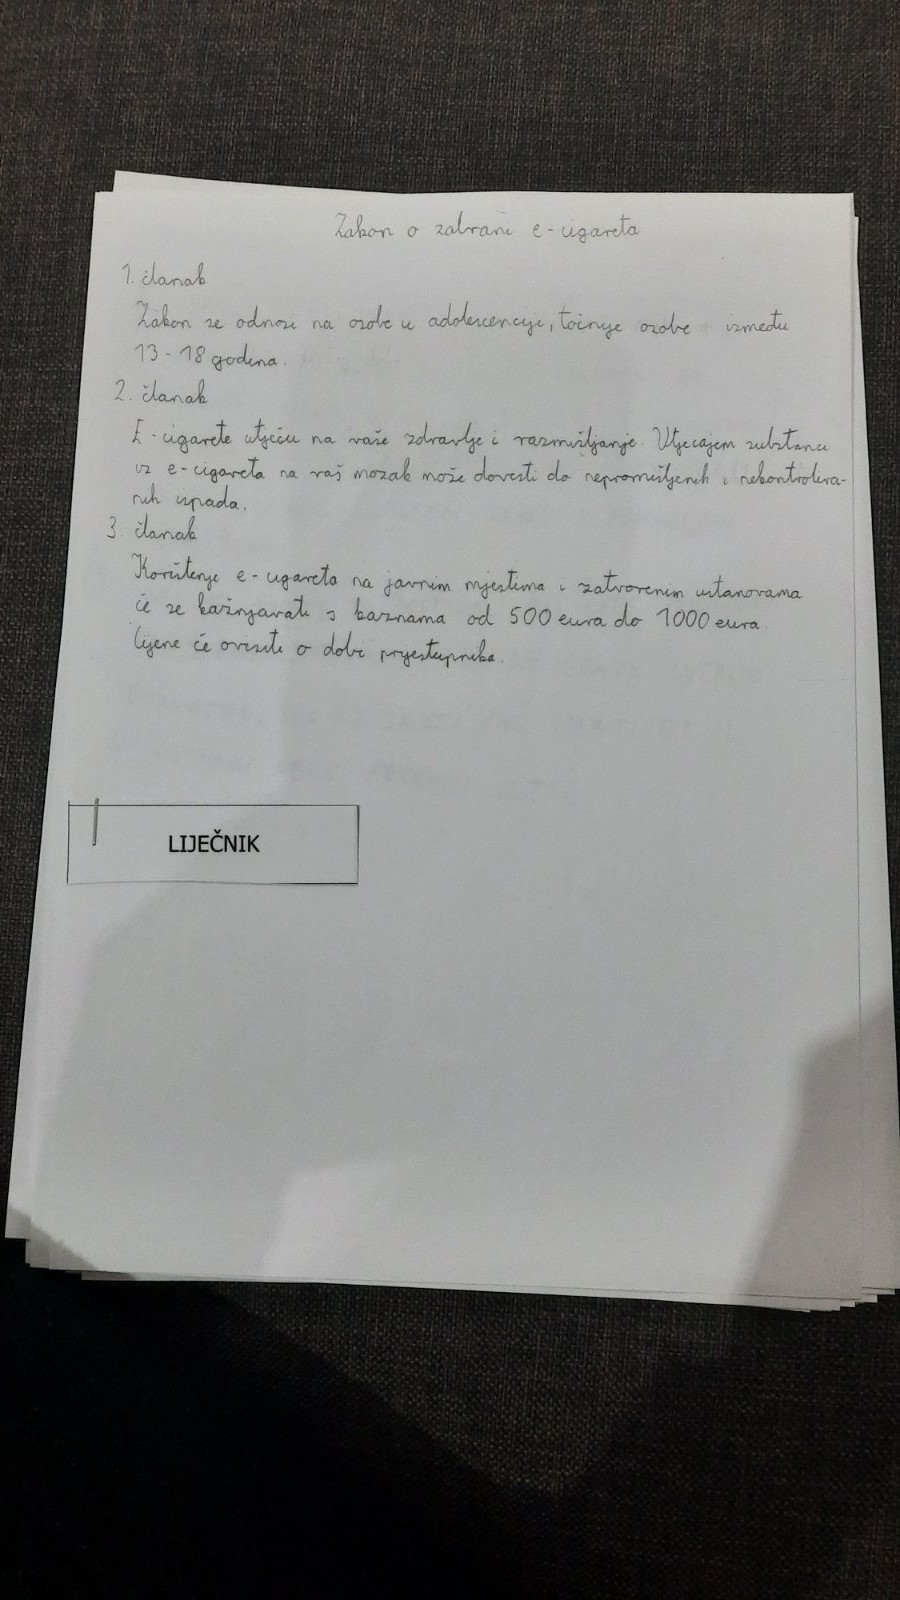 Zakon o zabrani e-cigareta
1. članak
Zakon se odnosi na osobe u adolescenciji, točnije osobe između
13-18 godina.
2. članak
E-cigarete utječu na vaše zdravlje i razmišljanje. Utjecajem substanci
iz e-cigareta na vaš mozak može dovesti do nepromišljenih i nekontrolira-
nih ispada.
3. članak
Korištenje e-cigareta na javnim mjestima i zatvorenim ustanovama
će se kažnjavati s kaznama od 500 eura do 1000 eura.
Cijene će ovisiti o dobi prijestupnika.
LIJEČNIK